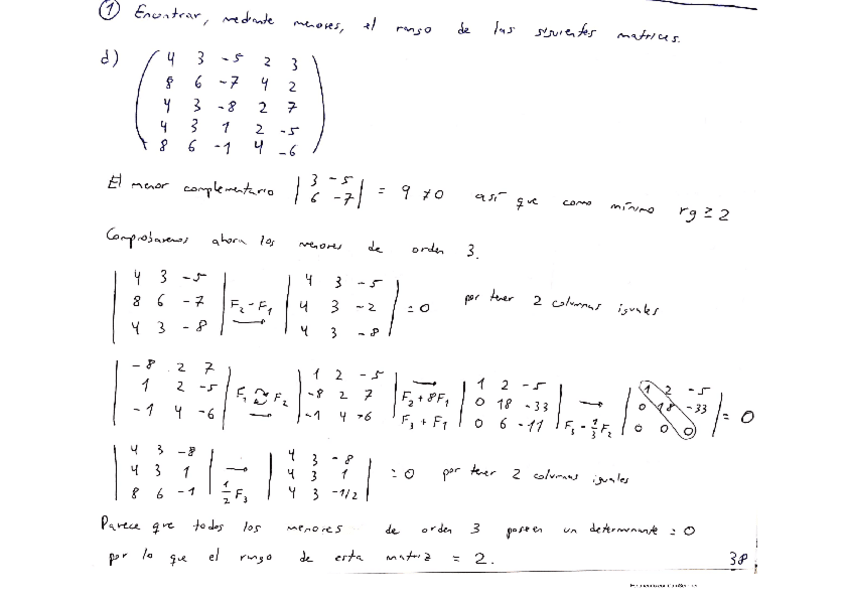 ① Encontrar, mediante menores, el rango de las siguientes matrices.
d) ( 4 3 -5 2 3
8 6 -7 4 2
4 3 -8 2 7
4 3 1 2 -5
8 6 -1 4 -6 )
El menor complementario | 3 -5 ; 6 -7 | = 9 ≠ 0 así que como mínimo rg ≥ 2
Comprobaremos ahora los menores de orden 3.
| 4 3 -5 ; 8 6 -7 ; 4 3 -8 | F₂-F₁ → | 4 3 -5 ; 4 3 -2 ; 4 3 -8 | = 0 por tener 2 columnas iguales
| -8 2 7 ; 1 2 -5 ; -1 4 -6 | F₁ ⇄ F₂ → | 1 2 -5 ; -8 2 7 ; -1 4 -6 | → F₂+8F₁ F₃+F₁ | 1 2 -5 ; 0 18 -33 ; 0 6 -11 | → F₃-1/3F₂ | 1 2 -5 ; 0 18 -33 ; 0 0 0 | = 0
| 4 3 -8 ; 4 3 1 ; 8 6 -1 | → 1/2 F₃ | 4 3 -8 ; 4 3 1 ; 4 3 -1/2 | = 0 por tener 2 columnas iguales
Parece que todos los menores de orden 3 poseen un determinante = 0
por lo que el rango de esta matriz = 2.
38